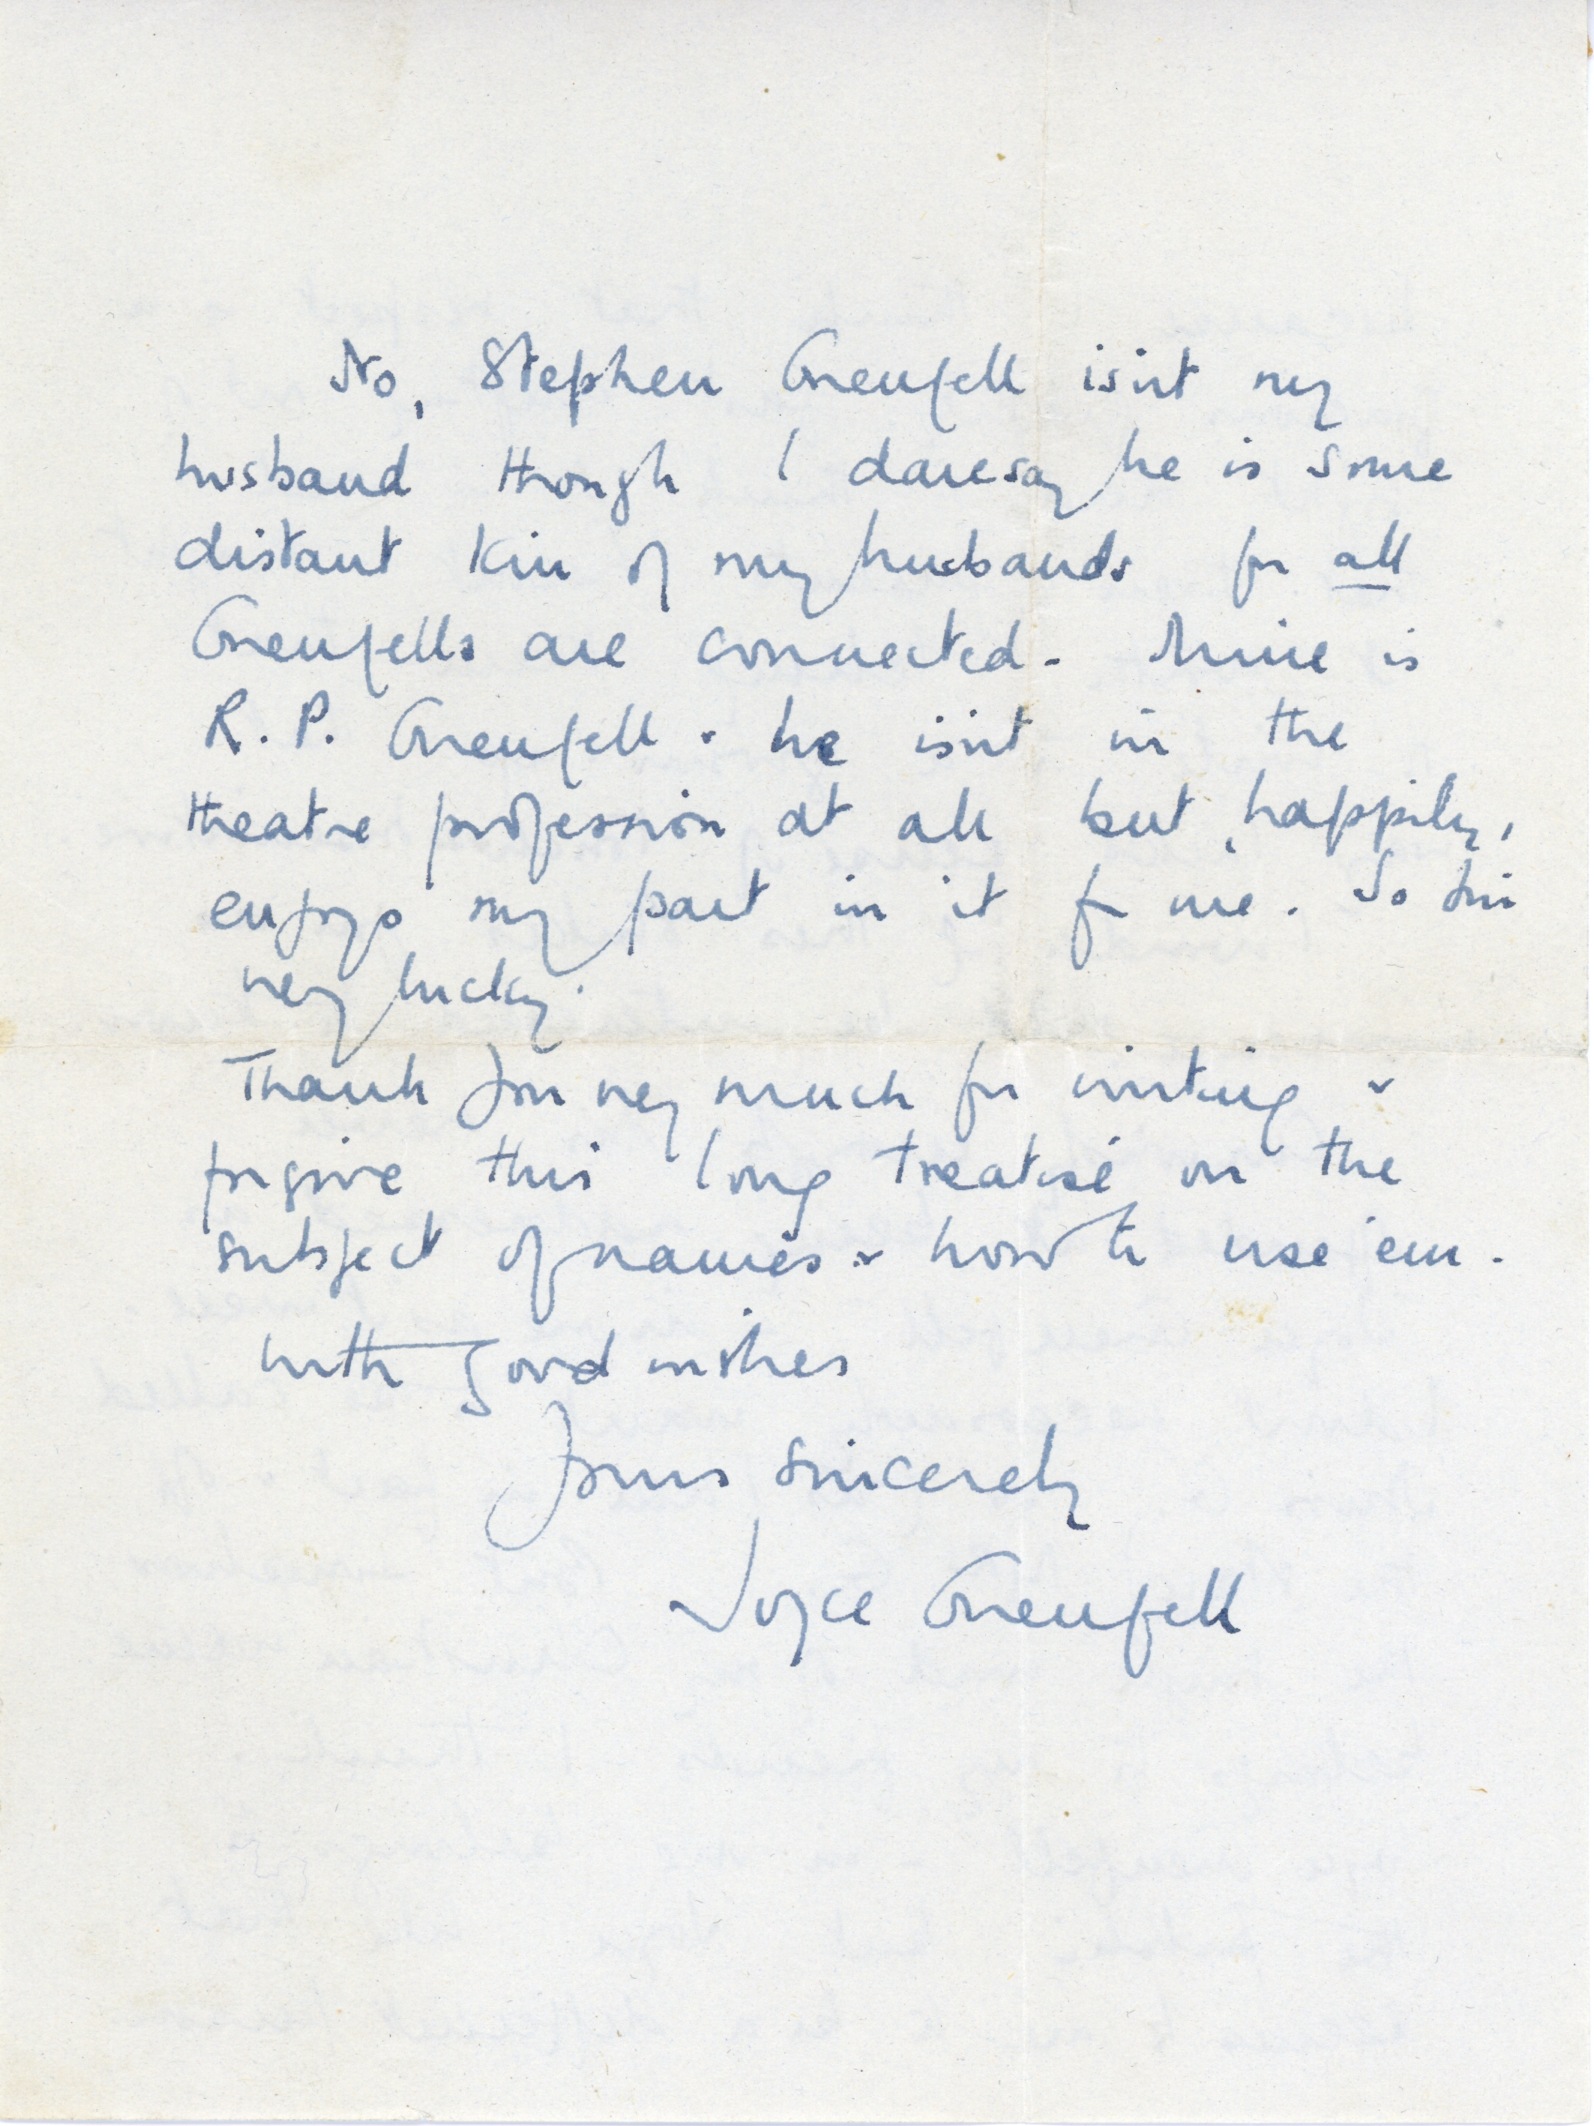 No, Stephen Grenfell isn't my
husband though I daresay he is some
distant kin of my husbands for all
Grenfells are connected. Mine is
R. P. Grenfell. he isn't in the
theatre profession at all but, happily,
enjoys my part in it for me. So I'm
very lucky.
Thank you very much for writing &
forgive this long treatise on the
subject of names & how to use 'em.
With good wishes
Yours sincerely
Joyce Grenfell